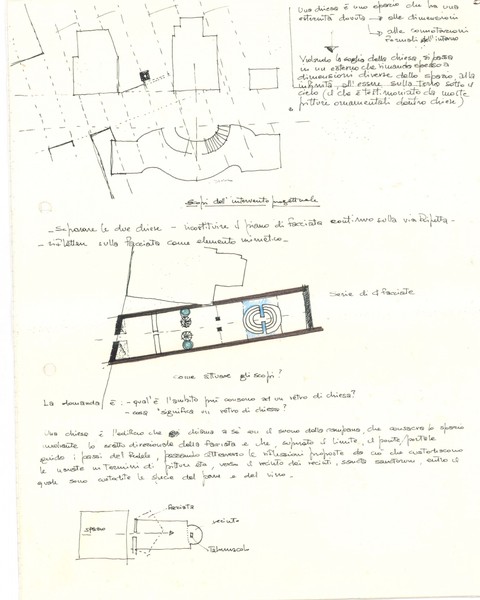 una chiesa è uno spazio che ha una
esternità dovuta → alle dimensioni
→ alle connotazioni
formali dell'interno
Violando la soglia della chiesa, si passa
in un esterno che rimanda spesso a
dimensioni diverse dello spazio, alla
infinità, all'essere sulla terra sotto il
cielo (il che è testimoniato da molte
pitture ornamentali dentro chiese)
scopi dell'intervento progettuale
- separare le due chiese - ricostituire il piano di facciata continuo sulla via Ripetta -
- riflettere sulla facciata come elemento
serie di 4 facciate
come attuare gli scopi?
La domanda è: - qual'è l'ambito più consono ad un retro di chiesa?
- cosa significa un retro di chiesa?
Una chiesa è l'edificio che chiama a sé con il suono della campana, che consacra lo spazio
mediante lo direzionale della facciata e che, superato il limite, il ponte/portale
guida i passi del fedele, passando attraverso le riflessioni proposte da ciò che custodiscono
le navate in termini di pitture etc, verso il recinto dei recinti, sancta sanctorum, entro il
quale sono custodite le specie del pane e del vino.
facciata
spazio
recinto
Tabernacolo